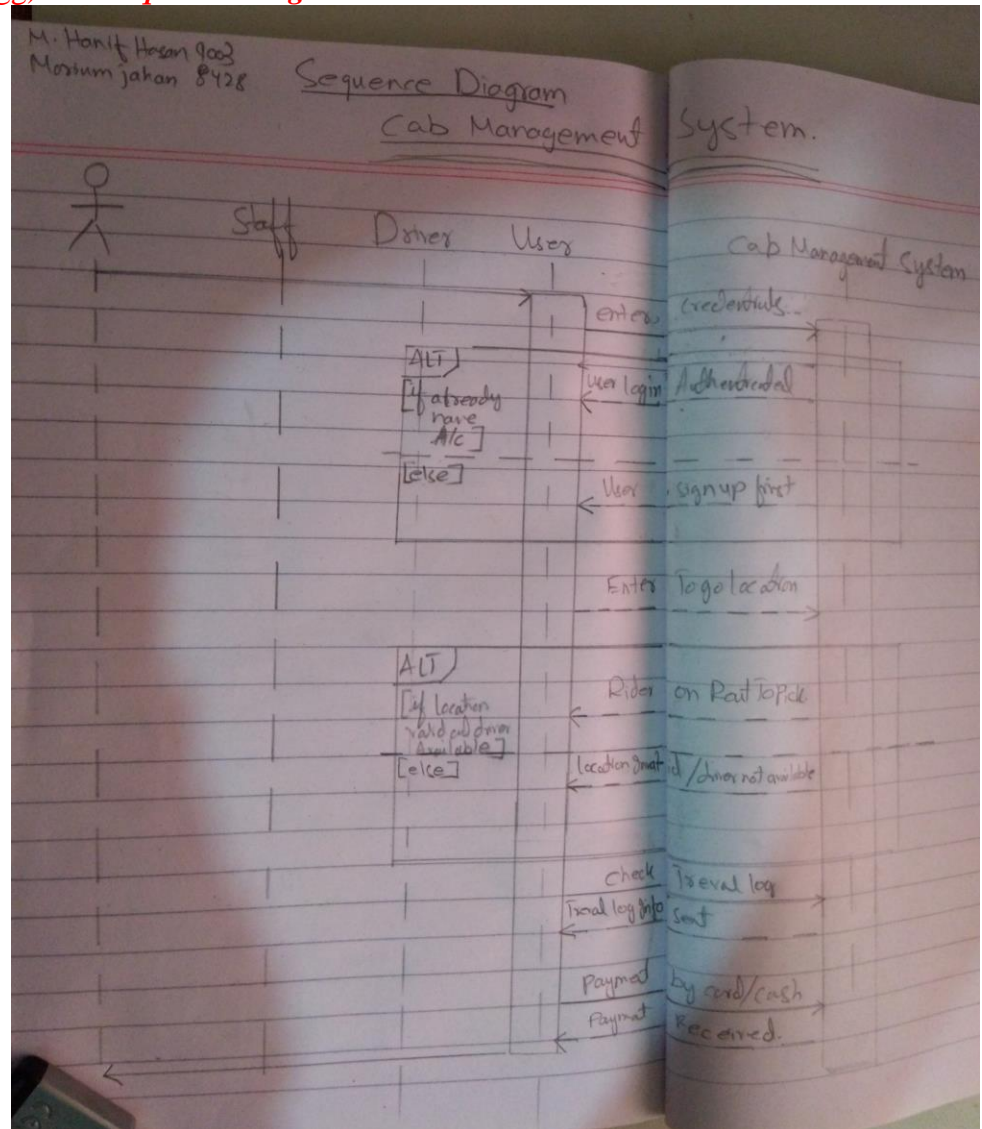 M. Hanif Hasan 9003
Morium jahan 8428
Sequence Diagram
Cab Management System.
Staff Driver User Cab Management System
enter credentials..
ALT
[if already have A/c]
User login Authenticated
[else]
User signup first
Enter To go location
ALT
[if location valid and driver Available]
Rider on Rout To pick
[else]
location / driver not available
check Treval log
Traval log Info sent
Payment by card/cash
Paymat Received.